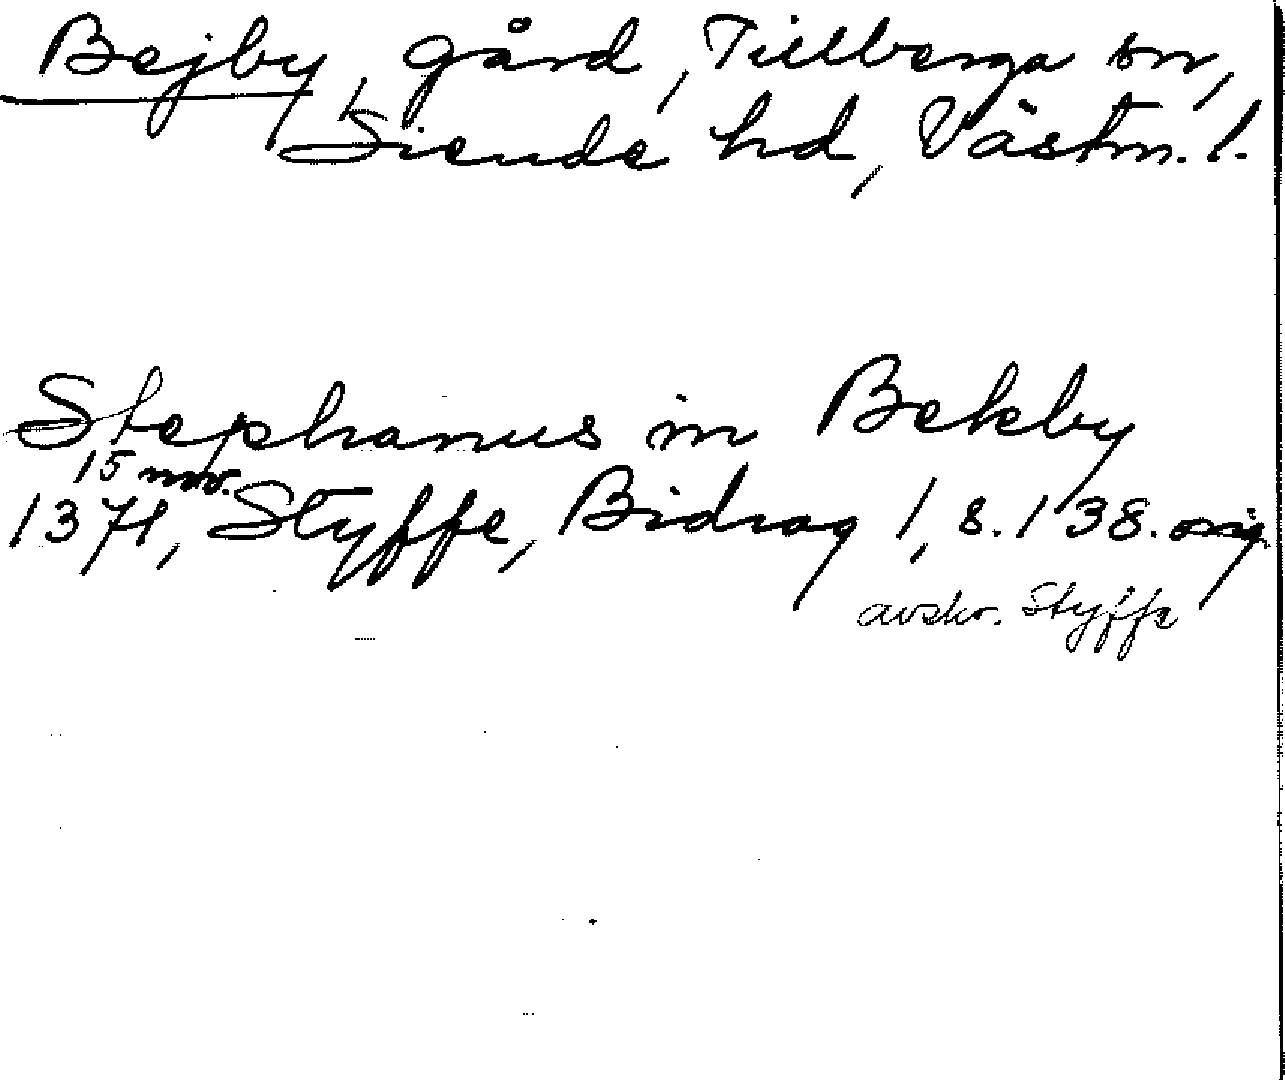 Bejby, gård, Tillberga sn,
Siende hd, Västm. l.
Stephanus in Bekby
15 nov.
1371, Styffe, Bidrag 1, s. 138. orig.
avskr. Styffe